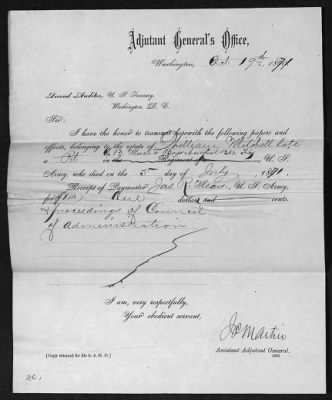 Adjutant General's Office,
Washington, Oct. 19th, 1871
Second Auditor, U. S. Treasury,
Washington, D. C.
Sir:
I have the honor to transmit herewith the following papers and
effects, belonging to the estate of William Mitchell late
a Pvt. in the Regiment of U. S.
Army, who died on the 5 day of July, 1871
Receipt of Paymaster Jas R Mears, U. S. Army,
for dollars and cents.
& Proceedings of Council
of Administration
I am, very respectfully,
Your obedient servant,
J P Martin
Assistant Adjutant General.
[Copy retained for file in A. G. O.]